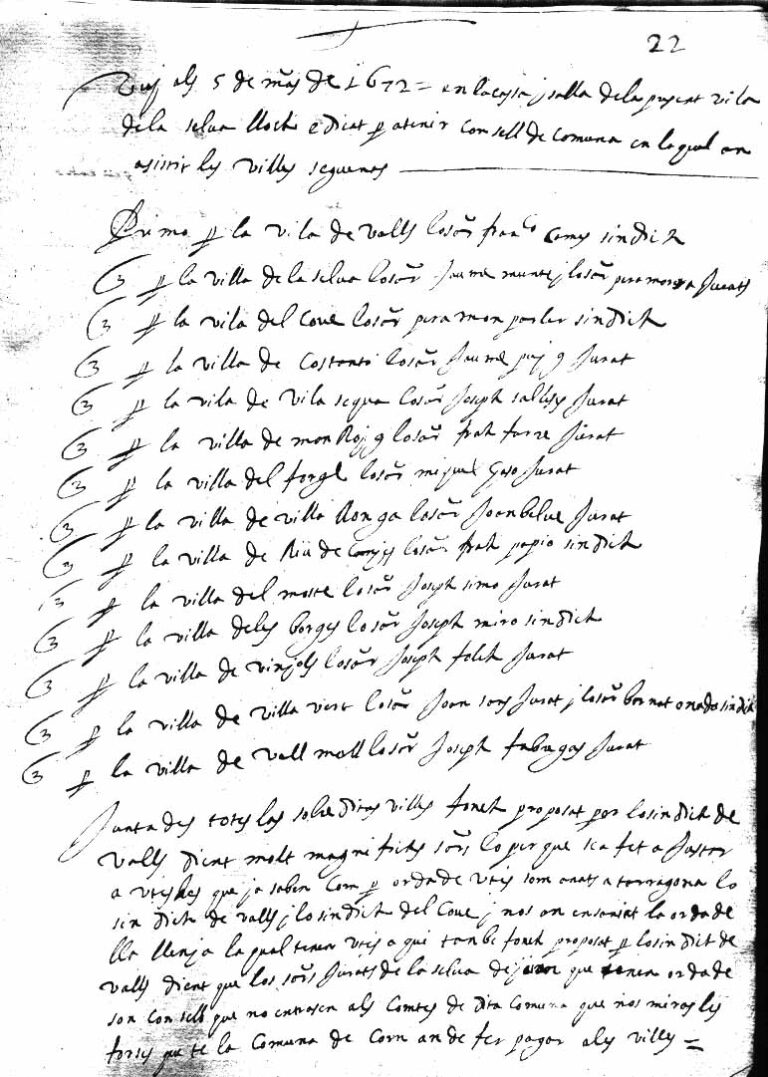 22
Vuy als 5 de mas de 1672 = en la casa j salla de la present vila
de la selva lloch edicat p atenir consell de comuna en lo qual an
asistit les villes seguens
Primo p la vila de valls losor franco comes sindich
p la villa de la selva losor Jaume munte j losor pera Jurats
p la vila del Cove losor pera mon parler sindich
p la villa de Costanti losor Jaume puj g Jurat
p la vila de vila sequa losor Joseph Jurat
p la villa de mon Roj g losor frah forre Jurat
p la villa del forgl losor miquel Jurat
p la villa de villa Ronga losor Joan Jurat
p la villa de Riu de Comjes losor frah papio sindich
p la villa del moste losor Joseph simo Jurat
p la villa deles borges losor Joseph miro sindich
p la villa de vinjols losor Joseph folch Jurat
p la villa de villa vert losor Joan Jurat j losor bernat sindich
p la villa de vall moll losor Joseph fabregas Jurat
Juntades totes las sobre ditas villes fonch proposat per losindich de
valls dient molt magnifichs sors lo per que sea fet a Justar
a vtes que ja saben com p orda de vtes som anats a tarragona lo
sindich de valls j lo sindich del Cove j nos an enseniat la orda de
lla llenja la qual tenen vtes a qui tanbe fonch proposat p losindich de
valls dient que los sors Jurats de la selva que tenen orda de
son consell que no entrasen als Comtes de dita Comuna que nos miras les
forses que te la Comuna de Corn an de fer pagar ales villes =